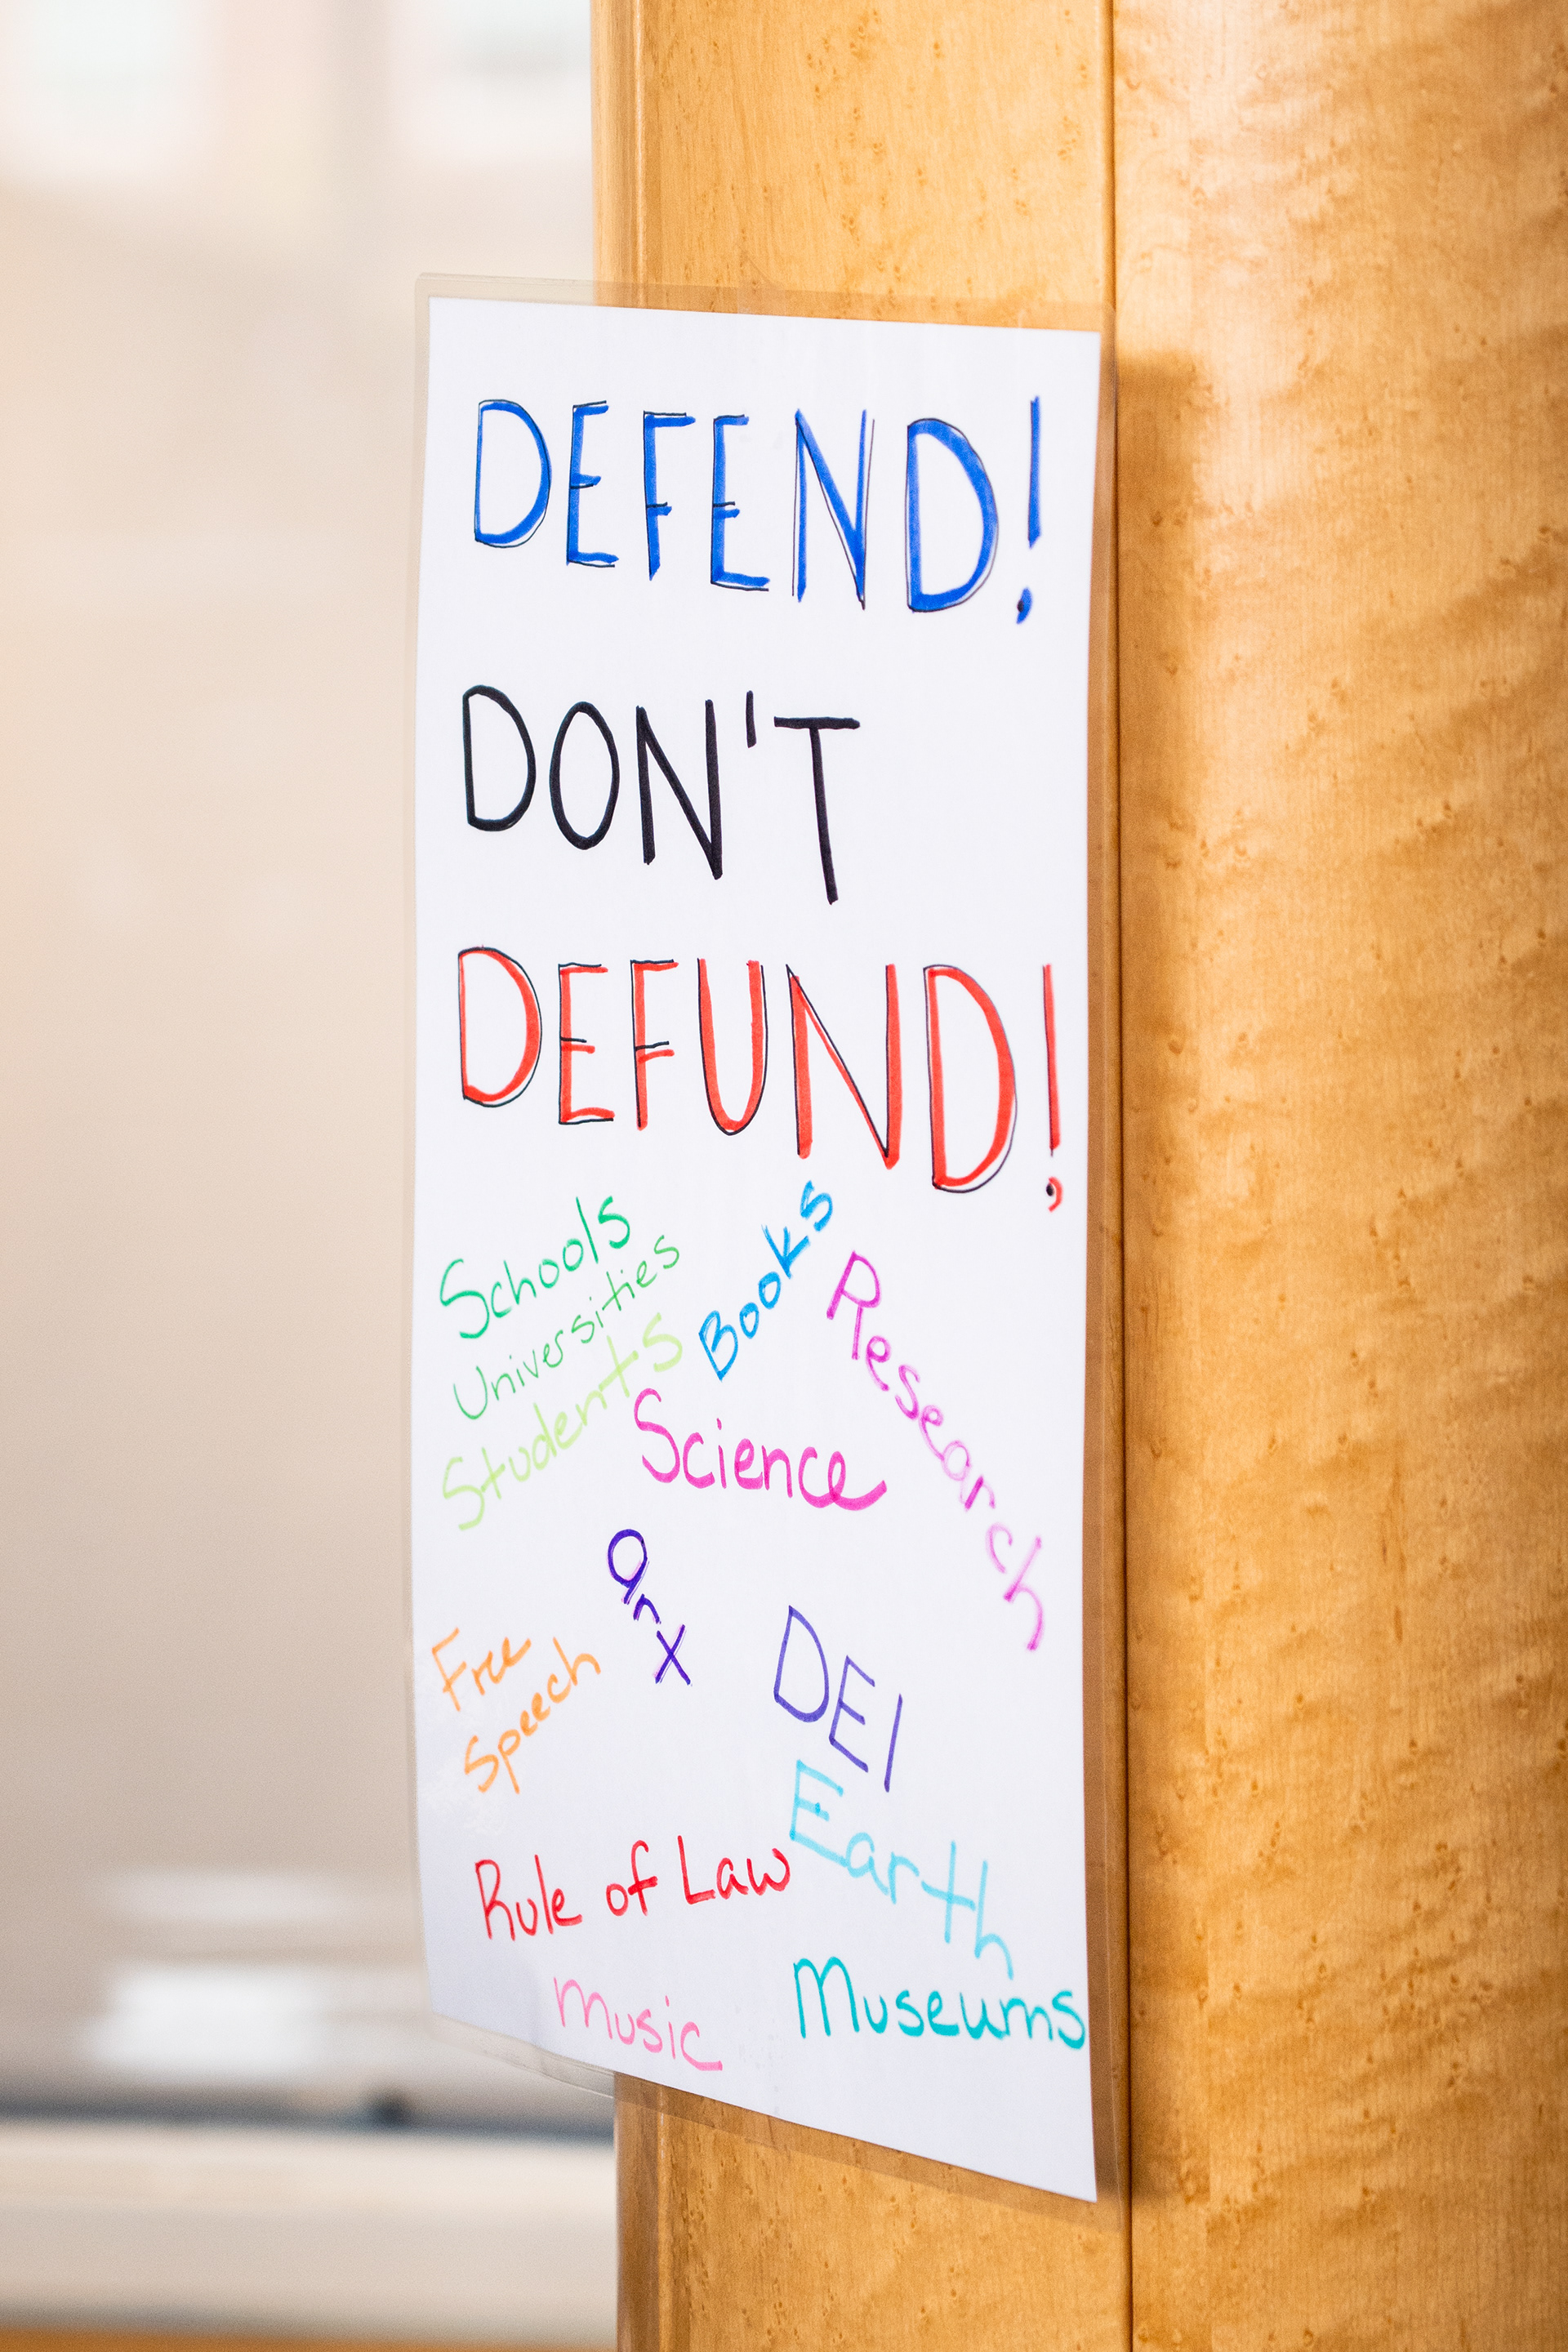 DEFEND!
DON'T
DEFUND!
Schools
Universities
Students
Books
Research
Science
Free
Speech
DEI
Earth
Rule of Law
Museums
music